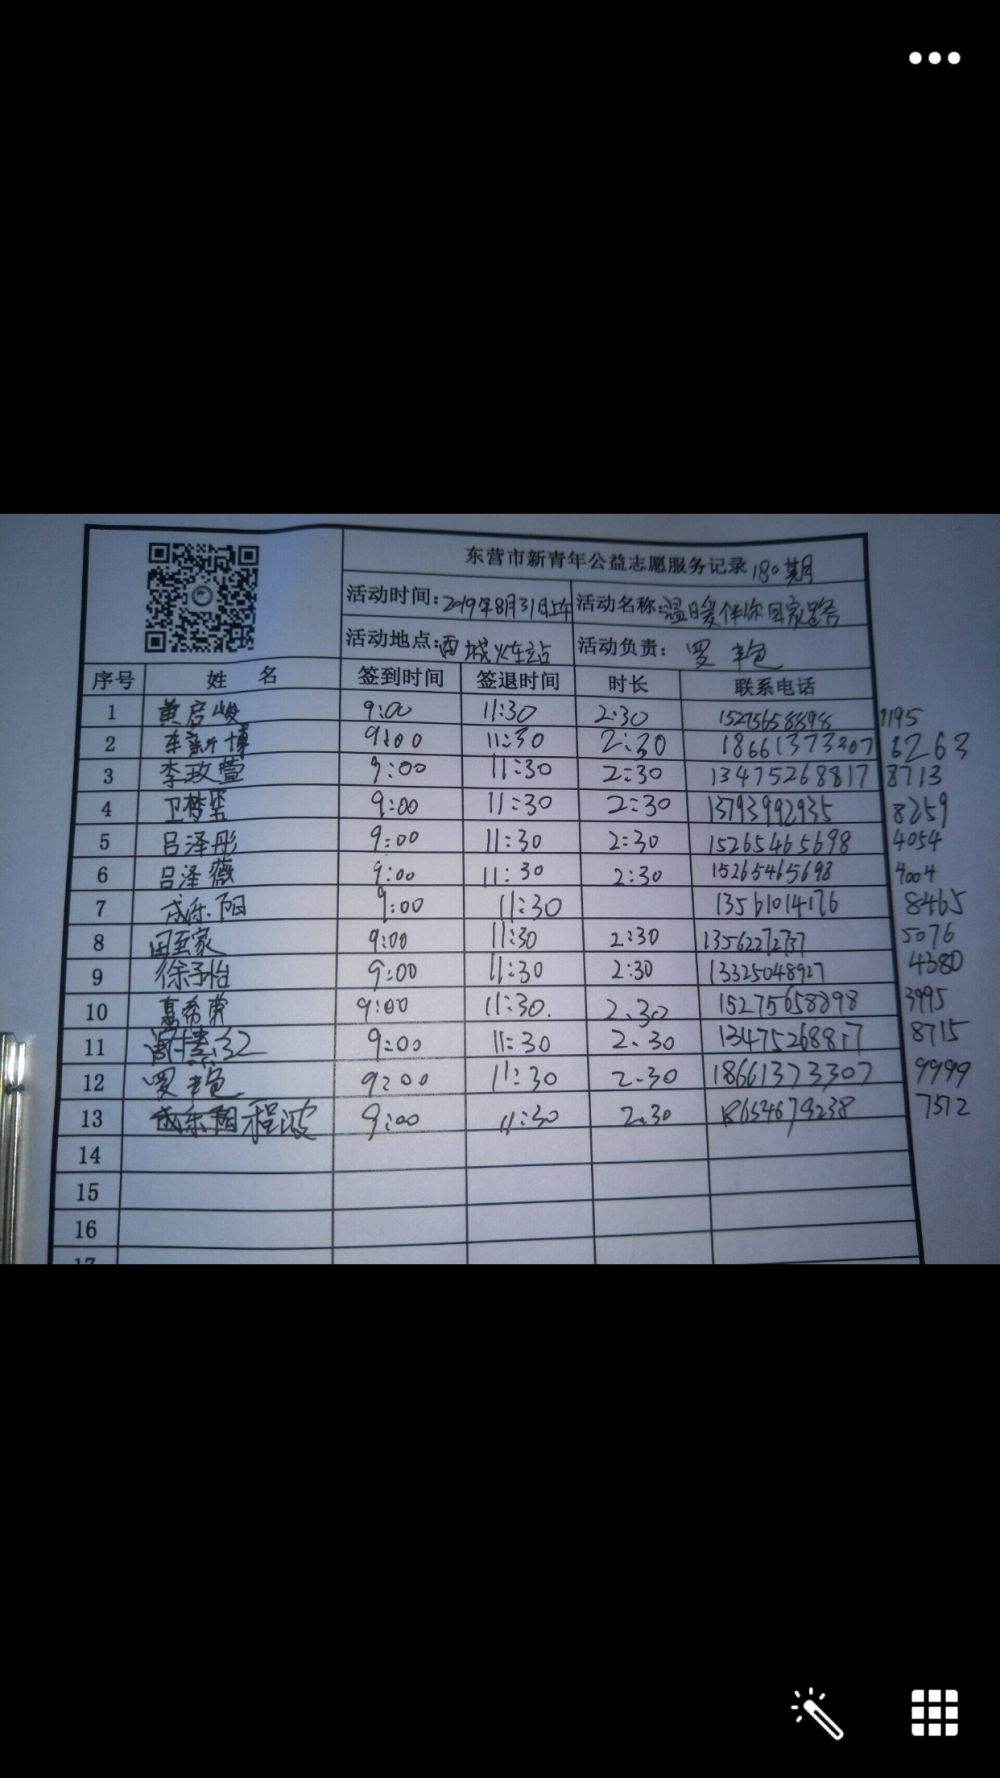 东营市新青年公益志愿服务记录 180期
活动时间：2019年8月31日上午 活动名称：温暖伴你回家路
活动地点：西城火车站 活动负责： 罗
序号 姓 名 签到时间 签退时间 时长 联系电话
1 黄启峻 9:00 11:30 2:30 15275658898 1195
2 新博 9:00 11:30 2:30 18661373307 6263
3 李政萱 9:00 11:30 2:30 13475268817 8713
4 卫 9:00 11:30 2:30 13793992935 8259
5 吕泽彤 9:00 11:30 2:30 15265465698 4054
6 吕泽薇 9:00 11:30 2:30 15265465698 4004
7 成乐阳 9:00 11:30 13561014176 8465
8 家 9:00 11:30 2:30 5076
9 徐子怡 9:00 11:30 2:30 13325048927 4380
10 9:00 11:30. 2.30 15275658898 3995
11 9:00 11:30 2.30 13475268817 8715
12 罗 9:00 11:30 2.30 18661373307 9999
13 程波 9:00 11:30 2.30 18654679238 7512
14
15
16
17